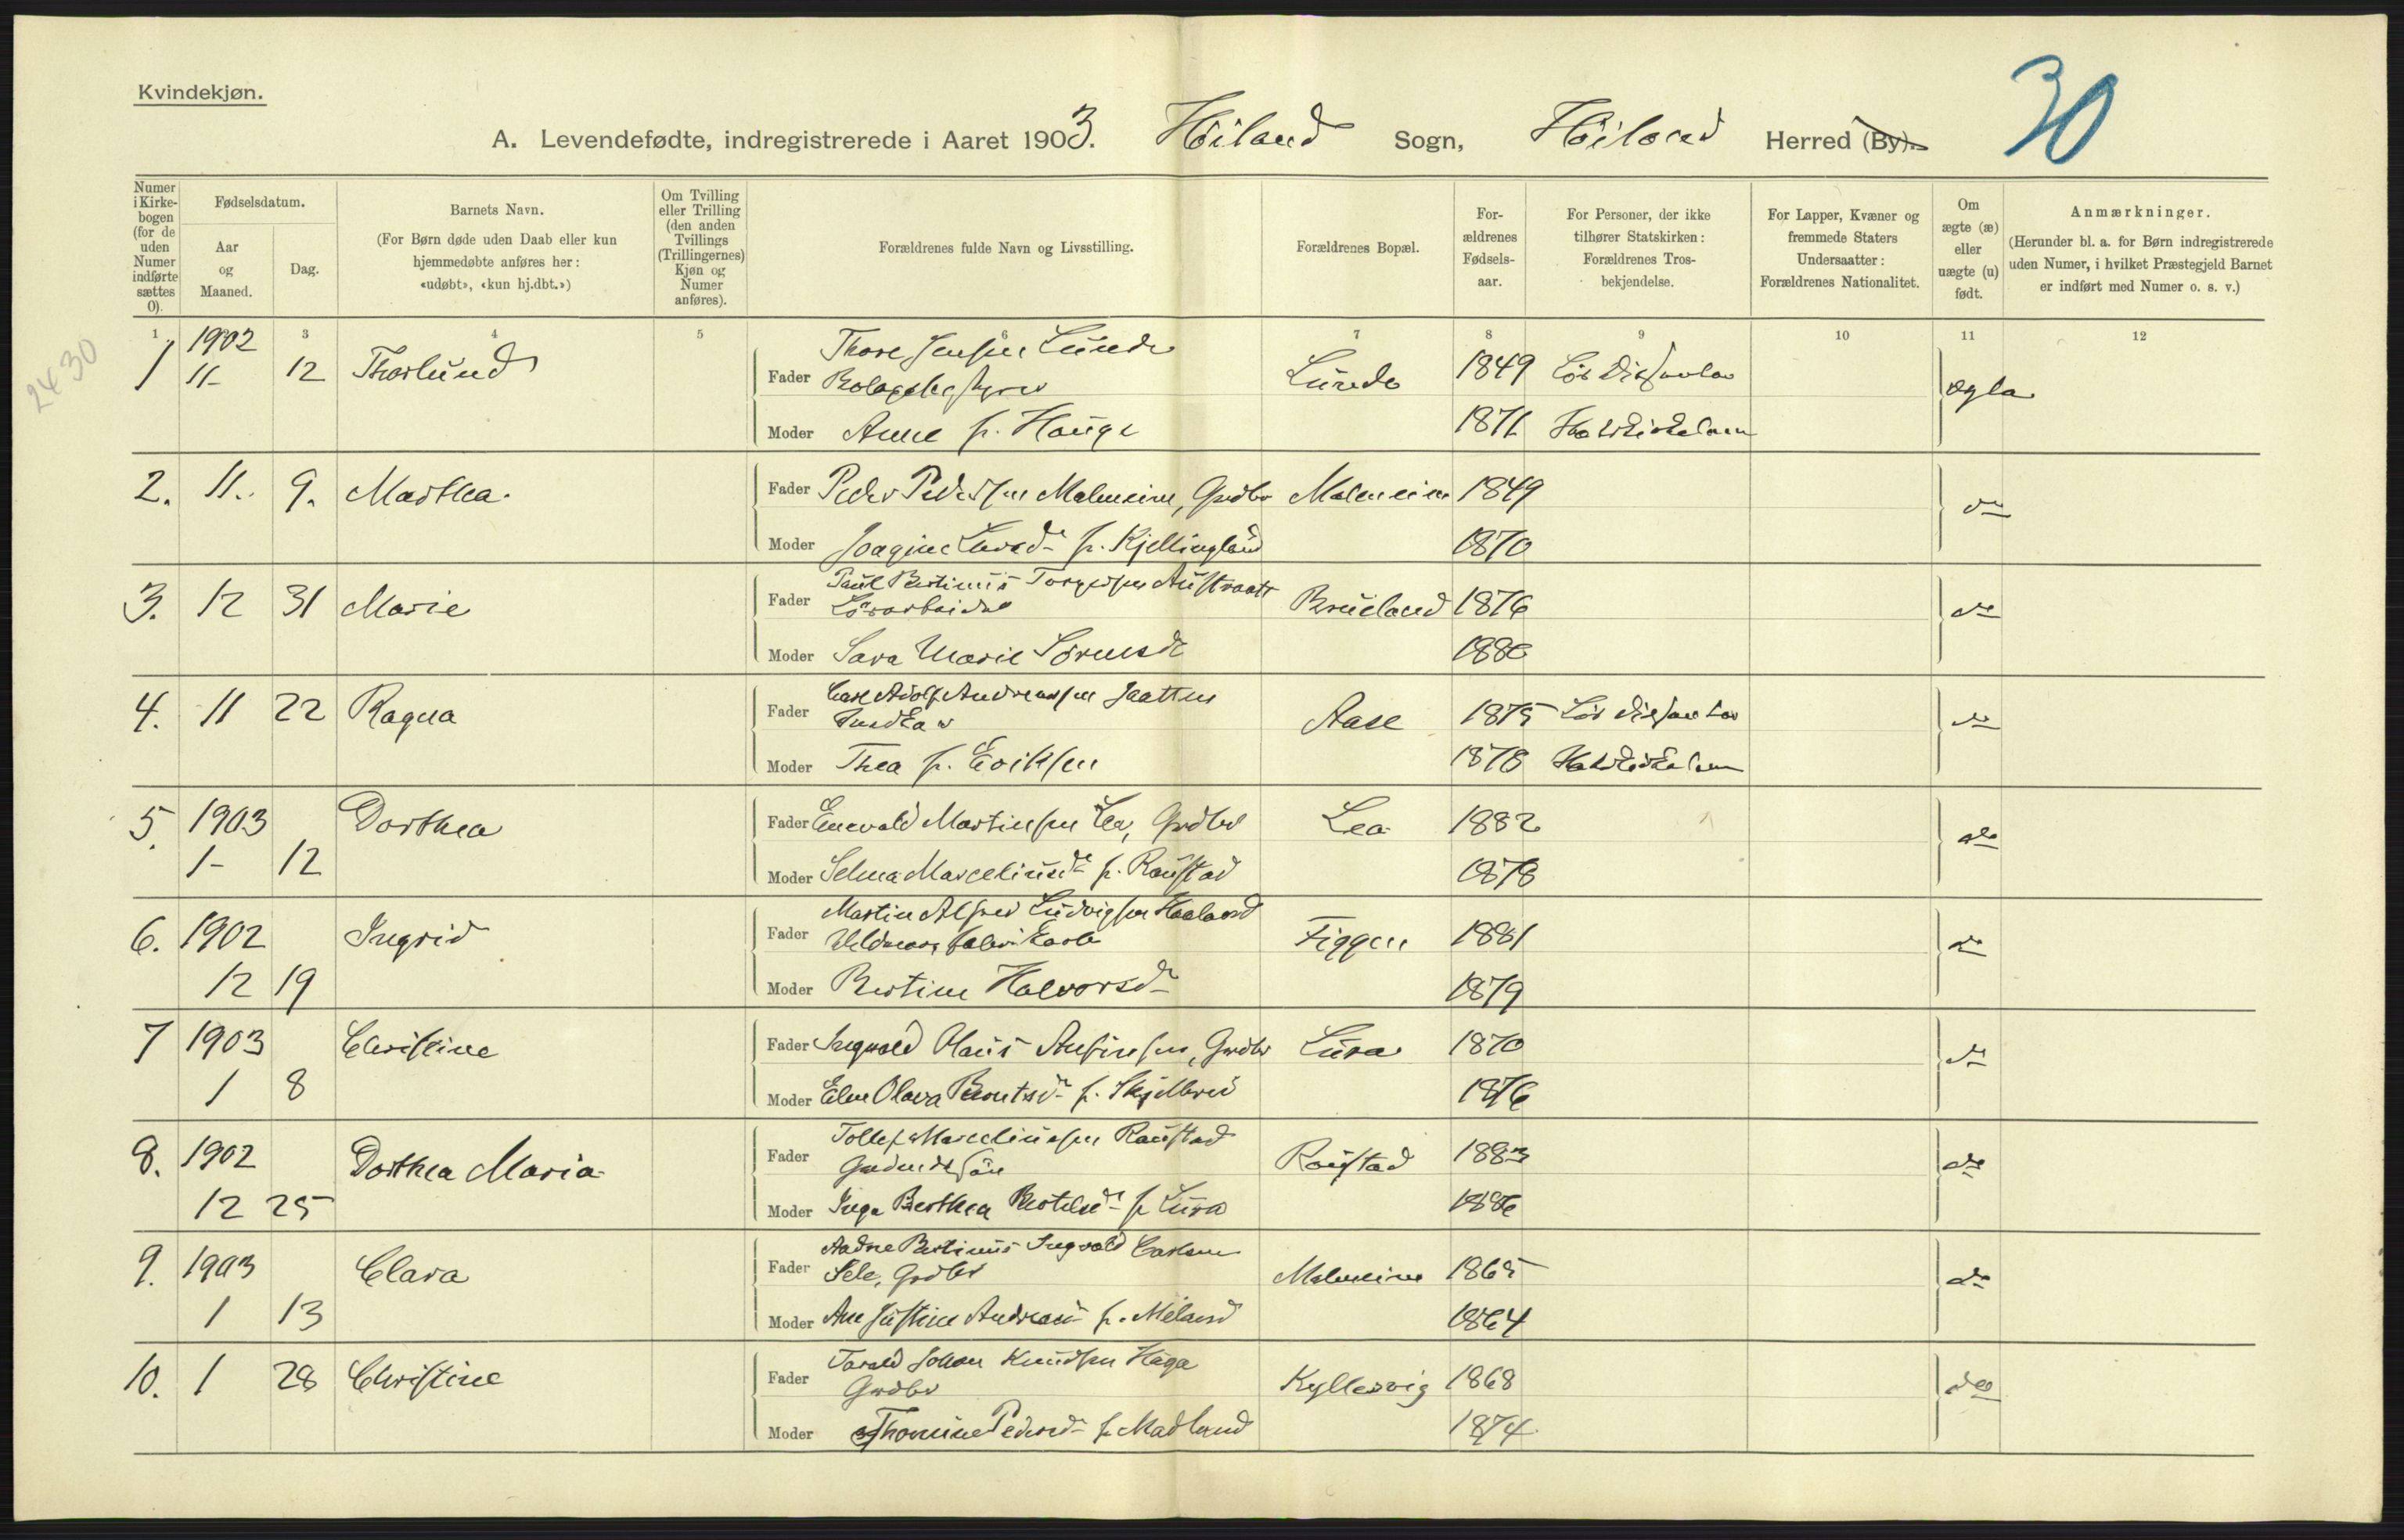 Kvindekjøn.
30
A. Levendefødte, indregistrerede i Aaret 1903. Höiland Sogn, Höiland Herred (By).
Numer i Kirkebogen (for de uden Numer indførte sættes 0).
Fødselsdatum.
Aar og Maaned.
Dag.
Barnets Navn.
(For Børn døde uden Daab eller kun hjemmedøbte anføres her: «udøbt», «kun hj.dbt.»)
Om Tvilling eller Trilling (den anden Tvillings (Trillingernes) Kjøn og Numer anføres).
Forældrenes fulde Navn og Livsstilling.
Forældrenes Bopæl.
Forældrenes Fødselsaar.
For Personer, der ikke tilhører Statskirken: Forældrenes Trosbekjendelse.
For Lapper, Kvæner og fremmede Staters Undersaatter: Forældrenes Nationalitet.
Om ægte (æ) eller uægte (u) født.
Anmærkninger.
(Herunder bl. a. for Børn indregistrerede uden Numer, i hvilket Præstegjeld Barnet er indført med Numer o. s. v.)
1 3 4 5 6 7 8 9 10 11 12
2430
1 1902 11 12 Thorlund Fader Thore Jensen Lunde
Lunde 1849
Moder Anne f. Hauge 1871
2. 11. 9. Marthea. Fader Peder Pedersen Malmeim, Grdbr Malmeim 1849 do
Moder Joagine Larsdr f. Kjellingland 1870
3. 12 31 Marie Fader Paul Bertinus Torgersen Austraatt
Brueland 1876 do
Moder Sara Marie Sörensdr 1880
4. 11 22 Ragna Fader Carl Adolf Andreassen Jaatten
Snedker Aase 1875 do
Moder Thea f. Eriksen 1878
5. 1903 Dorthea Fader Enevald Martinsen Lea, Grdbr Lea 1882 do
1 12 Moder Selma Marceliusdr f. Raustad 1878
6. 1902 Ingrid Fader Martin Alfred Ludvigsen Haaland
Figgen 1881 do
12 19 Moder Bertine Halvorsdr 1879
7 1903 Christine Fader Ingvald Olaus Ansinsen, Grdbr Lura 1870 do
1 8 Moder Elen Olava Berntsdr f. Skjelbred 1876
8. 1902 Dorthea Maria Fader Tollef Marceliussen Raustad
Raustad 1883 do
12 25 Moder Inga Berthea Bertelsdr f Lura 1886
9. 1903 Clara Fader Aadne Bertinius Ingvald Carlsen
Sele, Grdbr Malmeim 1865 do
1 13 Moder Ane Justine Andreasdr f. Meland 1864
10. 1 28 Christine Fader Tarald Johan Knudsen Haga
Grdbr Kyllesvig 1868 do
Moder Thomine Pedersdr f Madland 1874